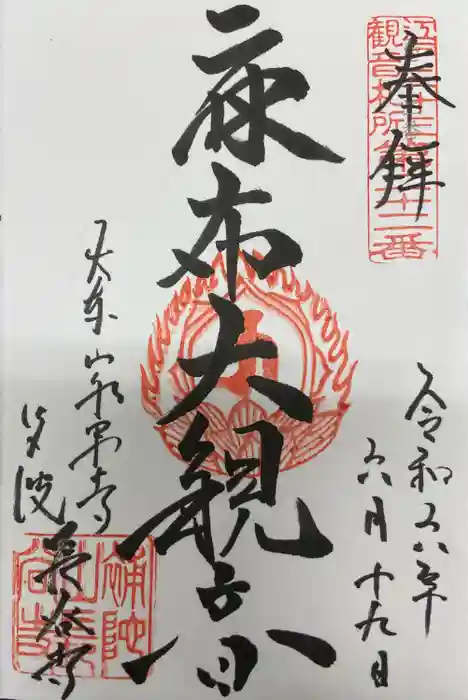 奉拝
江戸三十三
観音札所第二十二番
麻布大観音
令和六年
六月十九日
大本山永平寺
別院 長谷寺